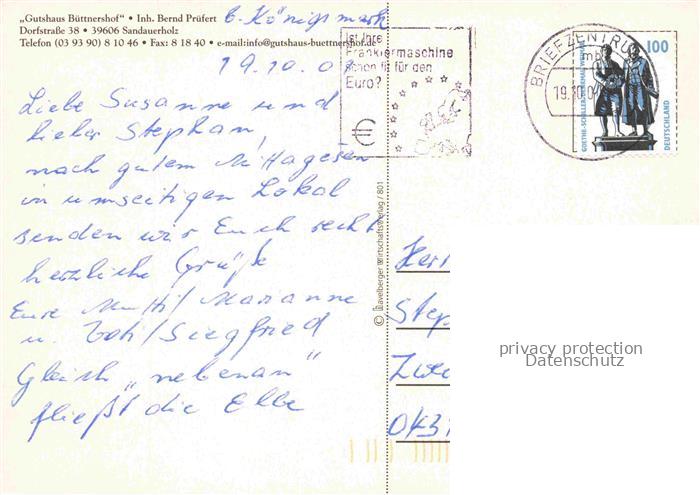 „Gutshaus Büttnershof“ • Inh. Bernd Prüfert
Dorfstraße 38 • 39606 Sandauerholz
Telefon (03 93 90) 8 10 46 • Fax: 8 18 40 • e-mail:info@gutshaus-buettnershof.de
b. Königsmark
19.10.01
Liebe Susanne und
lieber Stephan,
nach gutem Mittagessen
in umseitigen Lokal
senden wir Euch recht
herzliche Grüße
Eure Mutti/Marianne
u. Vati/Siegfried
Gleich „nebenan“
fließt die Elbe
Ist Ihre
Frankiermaschine
schon fit für den
Euro?
BRIEFZENTRUM
19.10.0
100
GOETHE-SCHILLER-DENKMAL WEIMAR
DEUTSCHLAND
© Havelberger Wirtschaftsverlag / 801
Herr
Step
Zwe
043
privacy protection
Datenschutz